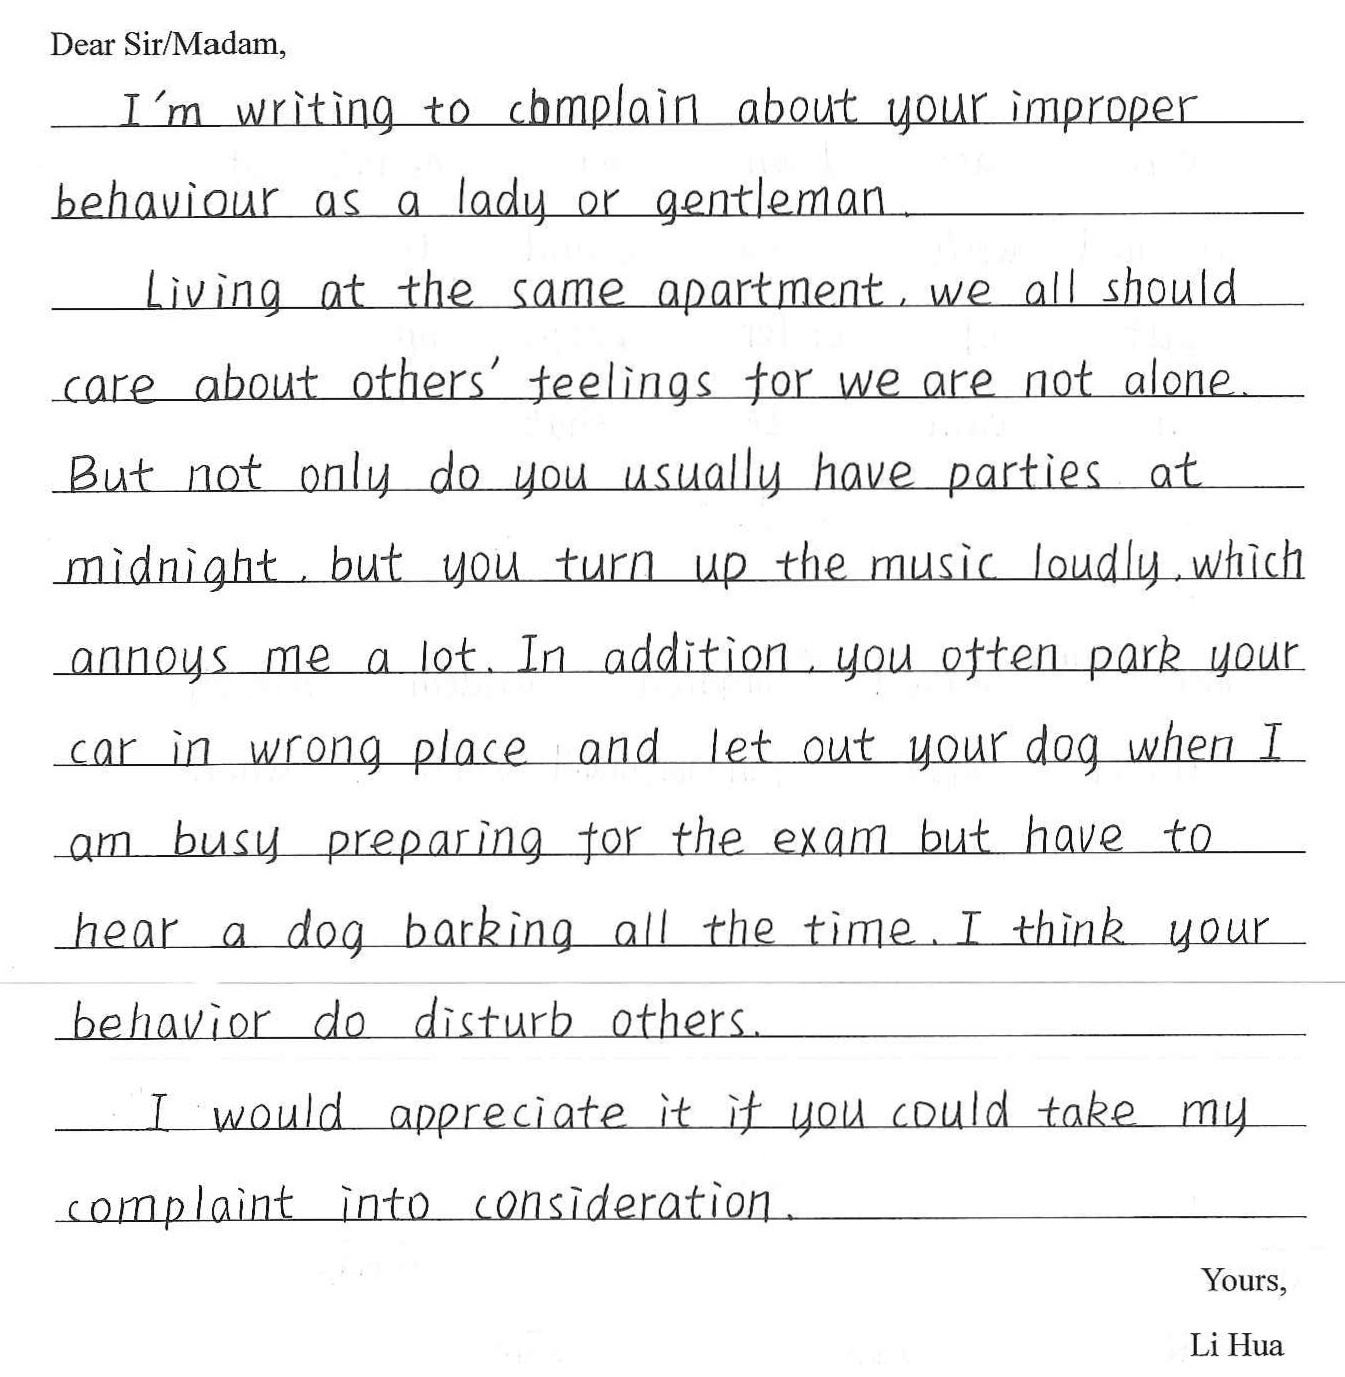 Dear Sir/Madam,
I'm writing to complain about your improper
behaviour as a lady or gentleman.
Living at the same apartment, we all should
care about others' feelings for we are not alone.
But not only do you usually have parties at
midnight, but you turn up the music loudly, which
annoys me a lot. In addition, you often park your
car in wrong place and let out your dog when I
am busy preparing for the exam but have to
hear a dog barking all the time. I think your
behavior do disturb others.
I would appreciate it if you could take my
complaint into consideration.
Yours,
Li Hua